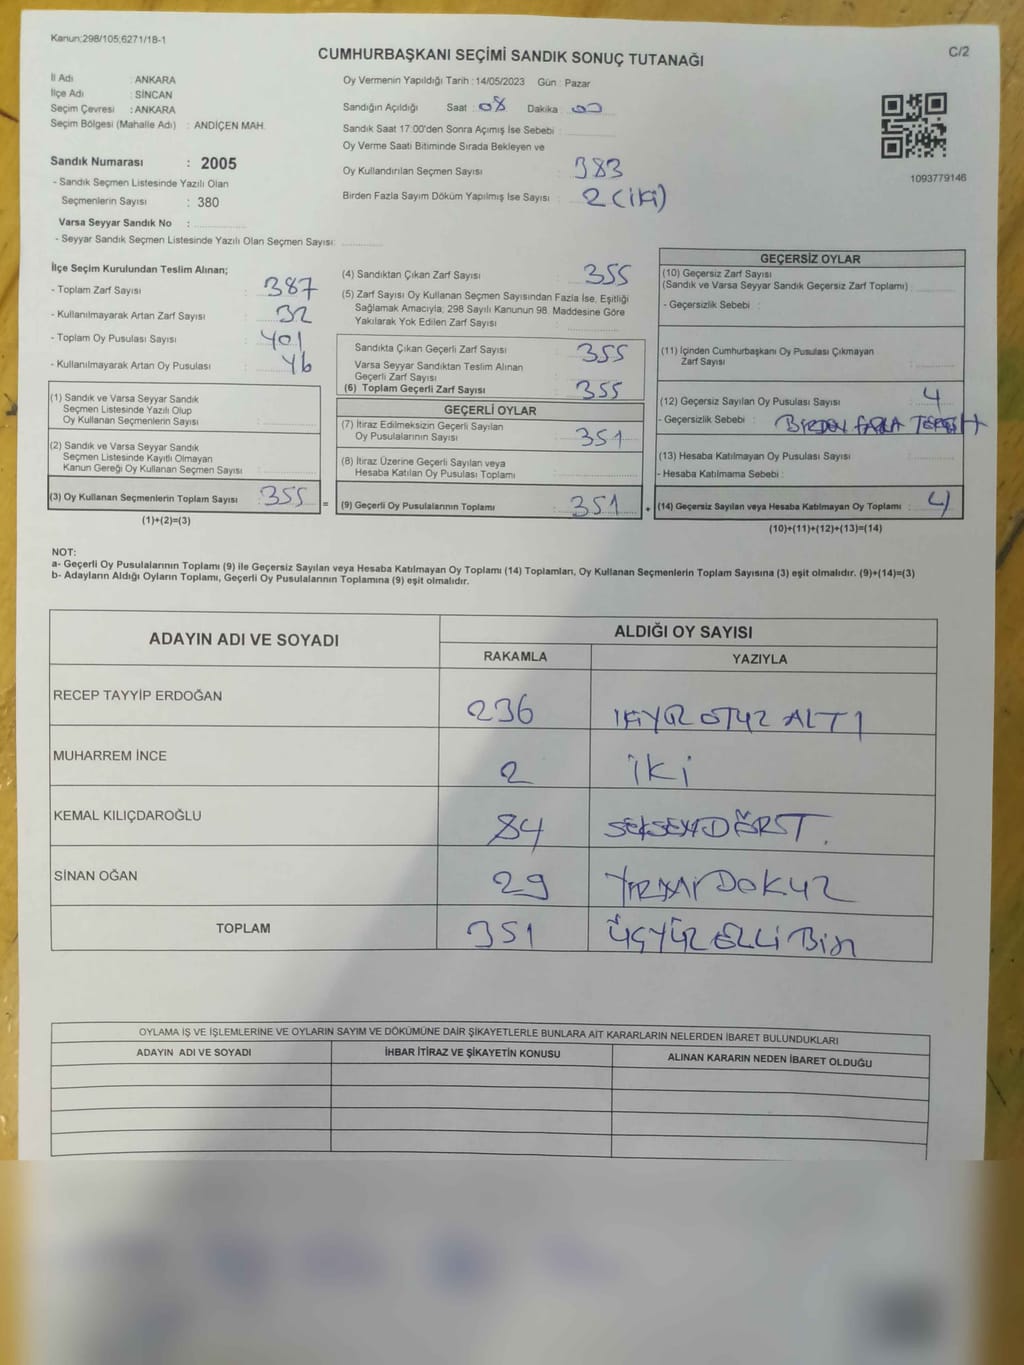 Kanun:298/105;6271/18-1
C/2
CUMHURBAŞKANI SEÇİMİ SANDIK SONUÇ TUTANAĞI
İl Adı : ANKARA
İlçe Adı : SİNCAN
Seçim Çevresi : ANKARA
Seçim Bölgesi (Mahalle Adı) : ANDİÇEN MAH.
Sandık Numarası : 2005
- Sandık Seçmen Listesinde Yazılı Olan
Seçmenlerin Sayısı : 380
Varsa Seyyar Sandık No :
- Seyyar Sandık Seçmen Listesinde Yazılı Olan Seçmen Sayısı:
Oy Vermenin Yapıldığı Tarih : 14/05/2023 Gün : Pazar
Sandığın Açıldığı Saat : 08 Dakika : 00
Sandık Saat 17:00'den Sonra Açımış İse Sebebi :
Oy Verme Saati Bitiminde Sırada Bekleyen ve
Oy Kullandırılan Seçmen Sayısı : 383
Birden Fazla Sayım Döküm Yapılmış İse Sayısı : 2 (iki)
1093779146
İlçe Seçim Kurulundan Teslim Alınan;
- Toplam Zarf Sayısı : 387
- Kullanılmayarak Artan Zarf Sayısı : 32
- Toplam Oy Pusulası Sayısı : 401
- Kullanılmayarak Artan Oy Pusulası : 46
(1) Sandık ve Varsa Seyyar Sandık
Seçmen Listesinde Yazılı Olup
Oy Kullanan Seçmenlerin Sayısı :
(2) Sandık ve Varsa Seyyar Sandık
Seçmen Listesinde Kayıtlı Olmayan
Kanun Gereği Oy Kullanan Seçmen Sayısı :
(3) Oy Kullanan Seçmenlerin Toplam Sayısı : 355 =
(1)+(2)=(3)
(4) Sandıktan Çıkan Zarf Sayısı : 355
(5) Zarf Sayısı Oy Kullanan Seçmen Sayısından Fazla İse, Eşitliği
Sağlamak Amacıyla; 298 Sayılı Kanunun 98. Maddesine Göre
Yakılarak Yok Edilen Zarf Sayısı :
Sandıkta Çıkan Geçerli Zarf Sayısı : 355
Varsa Seyyar Sandıktan Teslim Alınan
Geçerli Zarf Sayısı :
(6) Toplam Geçerli Zarf Sayısı : 355
GEÇERLİ OYLAR
(7) İtiraz Edilmeksizin Geçerli Sayılan
Oy Pusulalarının Sayısı : 351
(8) İtiraz Üzerine Geçerli Sayılan veya
Hesaba Katılan Oy Pusulası Toplamı :
(9) Geçerli Oy Pusulalarının Toplamı : 351 +
GEÇERSİZ OYLAR
(10) Geçersiz Zarf Sayısı
(Sandık ve Varsa Seyyar Sandık Geçersiz Zarf Toplamı) :
- Geçersizlik Sebebi :
(11) İçinden Cumhurbaşkanı Oy Pusulası Çıkmayan
Zarf Sayısı :
(12) Geçersiz Sayılan Oy Pusulası Sayısı : 4
- Geçersizlik Sebebi : BİRDEN FAZLA TERCİH
(13) Hesaba Katılmayan Oy Pusulası Sayısı :
- Hesaba Katılmama Sebebi :
(14) Geçersiz Sayılan veya Hesaba Katılmayan Oy Toplamı : 4
(10)+(11)+(12)+(13)=(14)
NOT:
a- Geçerli Oy Pusulalarının Toplamı (9) ile Geçersiz Sayılan veya Hesaba Katılmayan Oy Toplamı (14) Toplamları, Oy Kullanan Seçmenlerin Toplam Sayısına (3) eşit olmalıdır. (9)+(14)=(3)
b- Adayların Aldığı Oyların Toplamı, Geçerli Oy Pusulalarının Toplamına (9) eşit olmalıdır.
ADAYIN ADI VE SOYADI ALDIĞI OY SAYISI
RAKAMLA YAZIYLA
RECEP TAYYİP ERDOĞAN 236 İKİYÜZ OTUZ ALTI
MUHARREM İNCE 2 İKİ
KEMAL KILIÇDAROĞLU 84 SEKSENDÖRT.
SİNAN OĞAN 29 YİRMİ DOKUZ
TOPLAM 351 ÜÇYÜZ ELLİ BİR
OYLAMA İŞ VE İŞLEMLERİNE VE OYLARIN SAYIM VE DÖKÜMÜNE DAİR ŞİKAYETLERLE BUNLARA AİT KARARLARIN NELERDEN İBARET BULUNDUKLARI
ADAYIN ADI VE SOYADI İHBAR İTİRAZ VE ŞİKAYETİN KONUSU ALINAN KARARIN NEDEN İBARET OLDUĞU